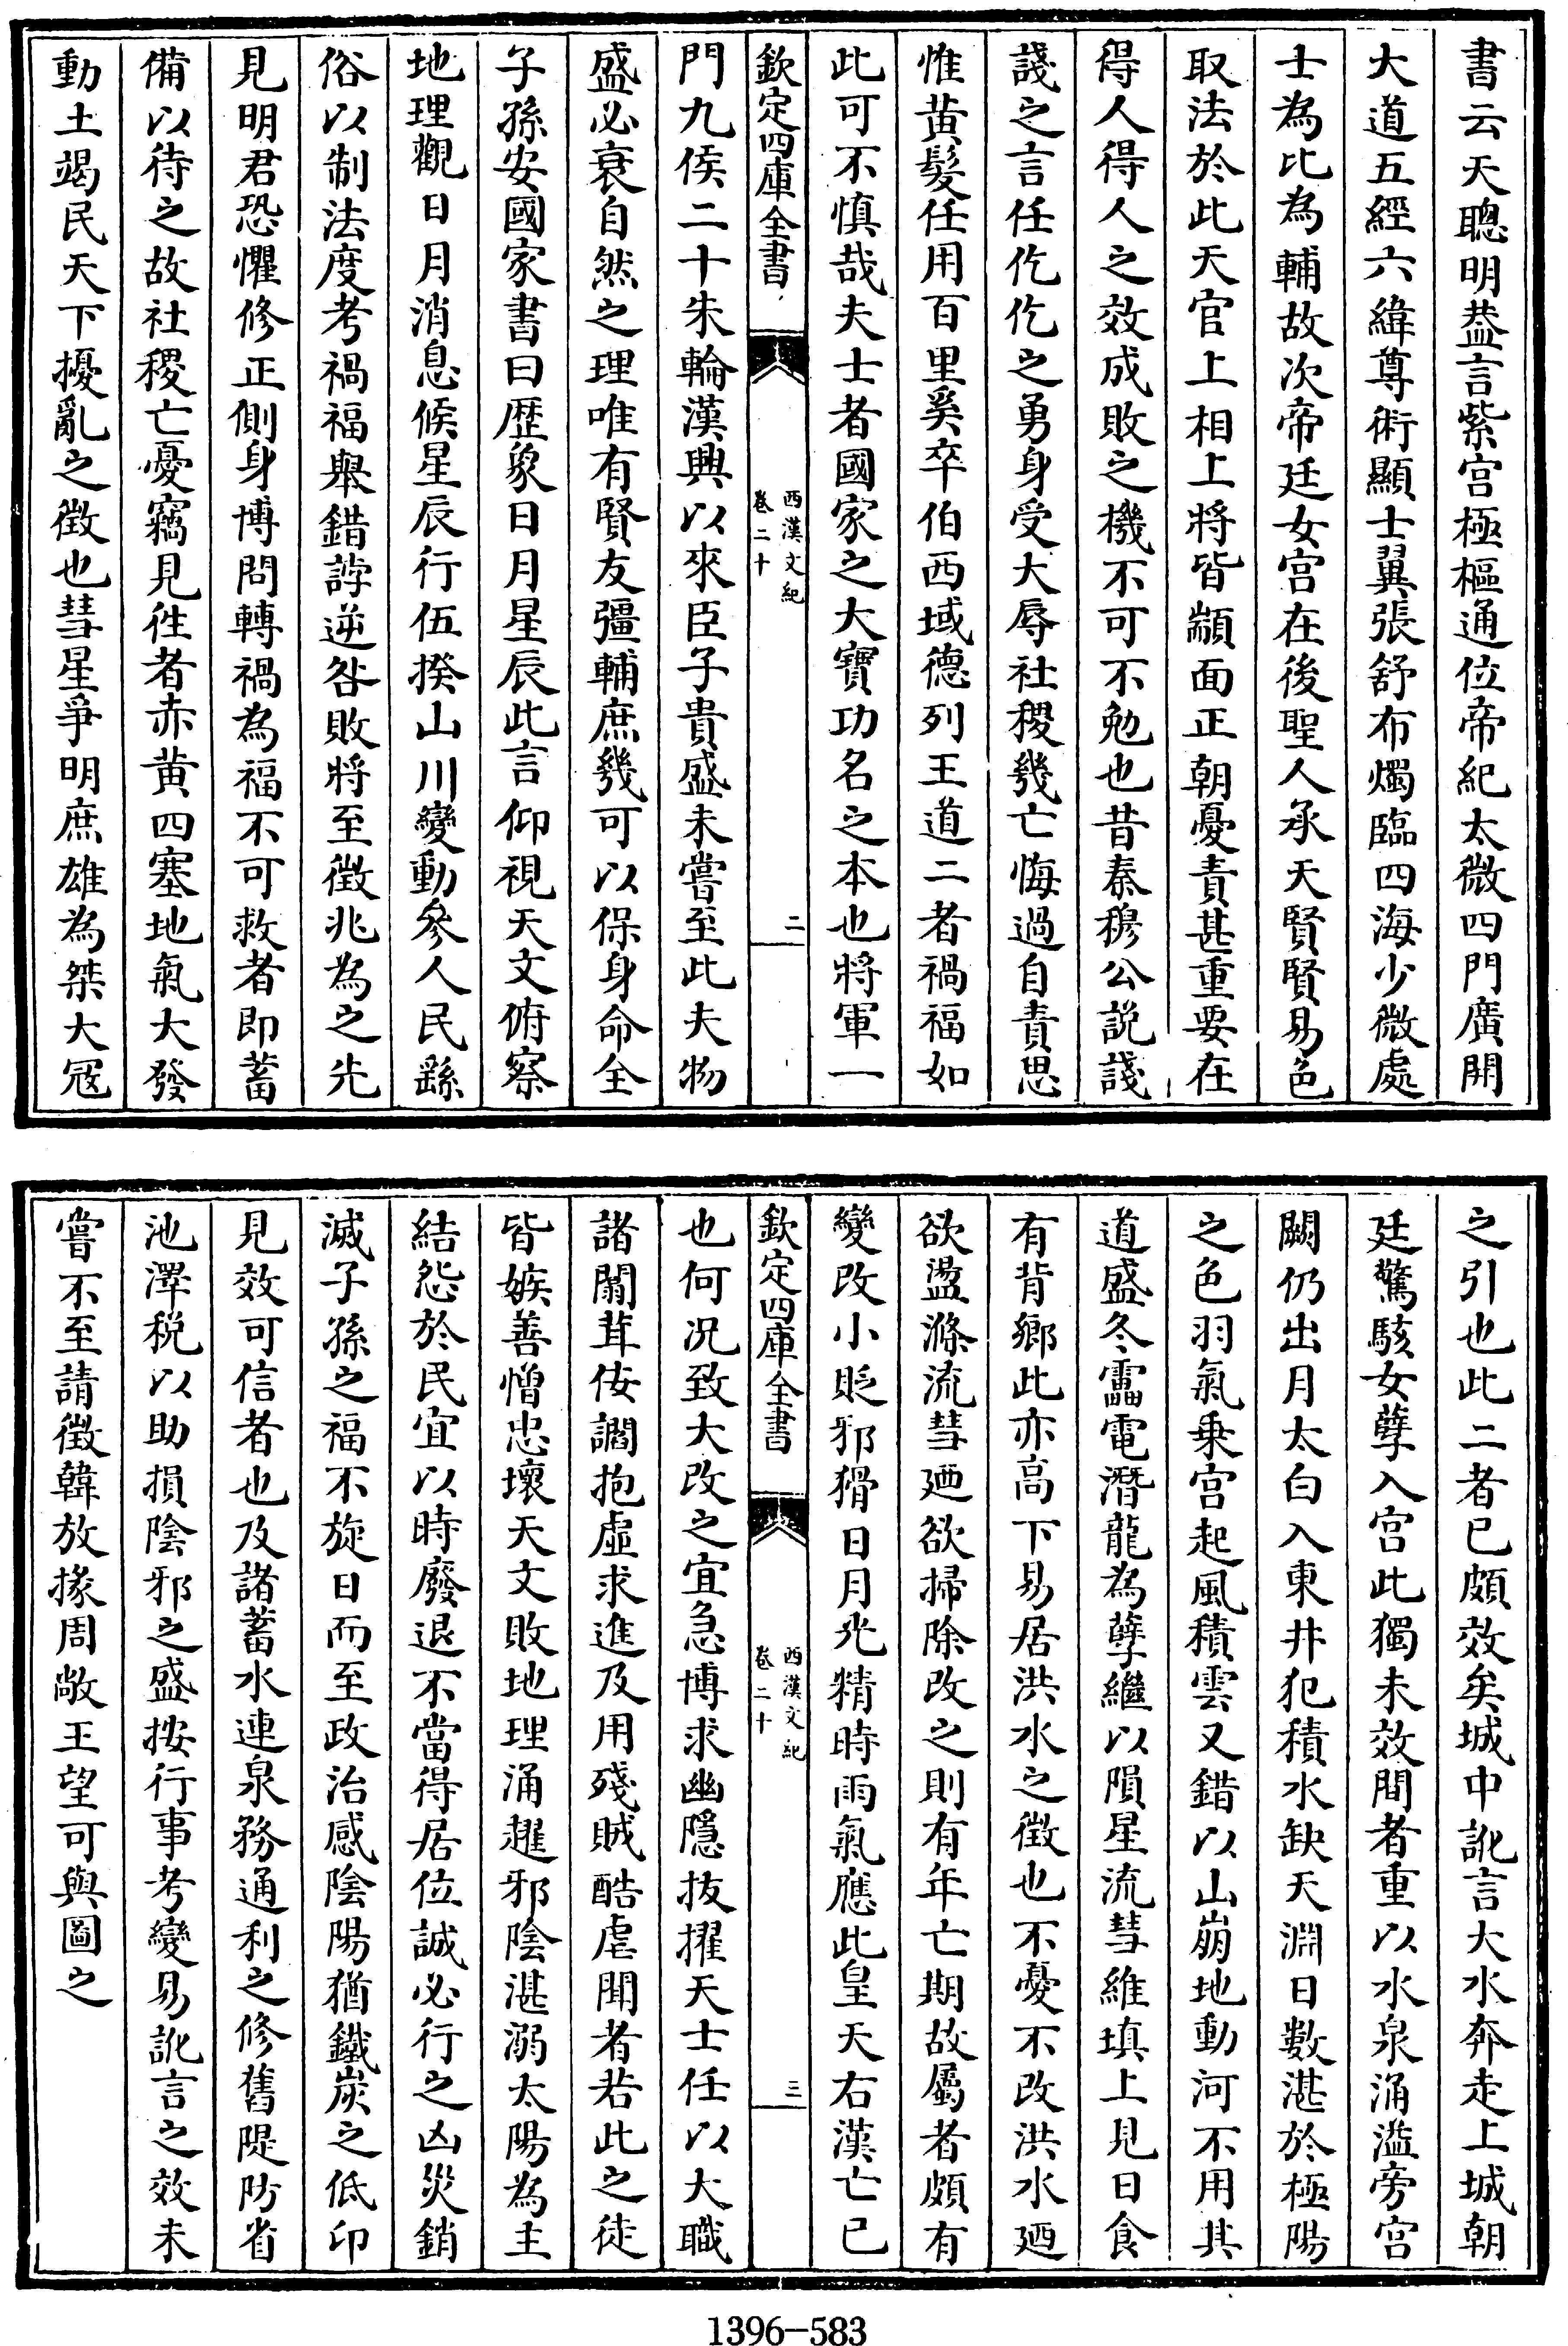 書云天聰明葢言紫宫極樞通位帝紀太微四門廣開
大道五經六緯尊術顯士翼張舒布燭臨四海少微處
士為比為輔故次帝廷女宫在後聖人承天賢賢易色
取法於此天官上相上將皆顓面正朝憂責甚重要在
得人得人之效成敗之機不可不勉也昔秦穆公説諓
諓之言任仡仡之勇身受大辱社稷㡬亡悔過自責思
惟黄髮任用百里奚卒伯西域德列王道二者禍福如
此可不慎哉夫士者國家之大寳功名之本也將軍一
欽定四庫全書
西漢文紀
卷二十
二
門九侯二十朱輪漢興以來臣子貴盛未嘗至此夫物
盛必衰自然之理唯有賢友彊輔庶㡬可以保身命全
子孫安國家書曰歴象日月星辰此言仰視天文俯察
地理觀日月消息候星辰行伍揆山川變動參人民繇
俗以制法度考禍福舉錯誖逆咎敗將至徴兆為之先
見明君恐懼修正側身博問轉禍為福不可救者即蓄
備以待之故社稷亡憂竊見徃者赤黄四塞地氣大發
動土竭民天下擾亂之徴也彗星爭明庶雄為桀大冦
之引也此二者已頗效矣城中訛言大水奔走上城朝
廷驚駭女孽入宫此獨未效間者重以水泉涌溢旁宫
闕仍出月太白入東井犯積水缺天淵日數湛於極陽
之色羽氣乗宫起風積雲又錯以山崩地動河不用其
道盛冬靁電潛龍為孽繼以隕星流彗維填上見日食
有背鄉此亦高下易居洪水之徴也不憂不改洪水廼
欲盪滌流彗廼欲掃除改之則有年亡期故屬者頗有
變改小貶邪猾日月光精時雨氣應此皇天右漢亡已
欽定四庫全書
西漢文紀
卷二十
三
也何况致大改之宜急博求幽隱拔擢天士任以大職
諸闒茸佞讇抱虛求進及用殘賊酷虐聞者若此之徒
皆嫉善憎忠壞天文敗地理涌趯邪陰湛溺太陽為主
結怨於民宜以時廢退不當得居位誠必行之凶災銷
滅子孫之福不旋日而至政治感陰陽猶鐵炭之低卬
見效可信者也及諸蓄水連泉務通利之修舊隄防省
池澤稅以助損陰邪之盛按行事考變易訛言之效未
嘗不至請徴韓放掾周敞王望可與圖之
1396-583